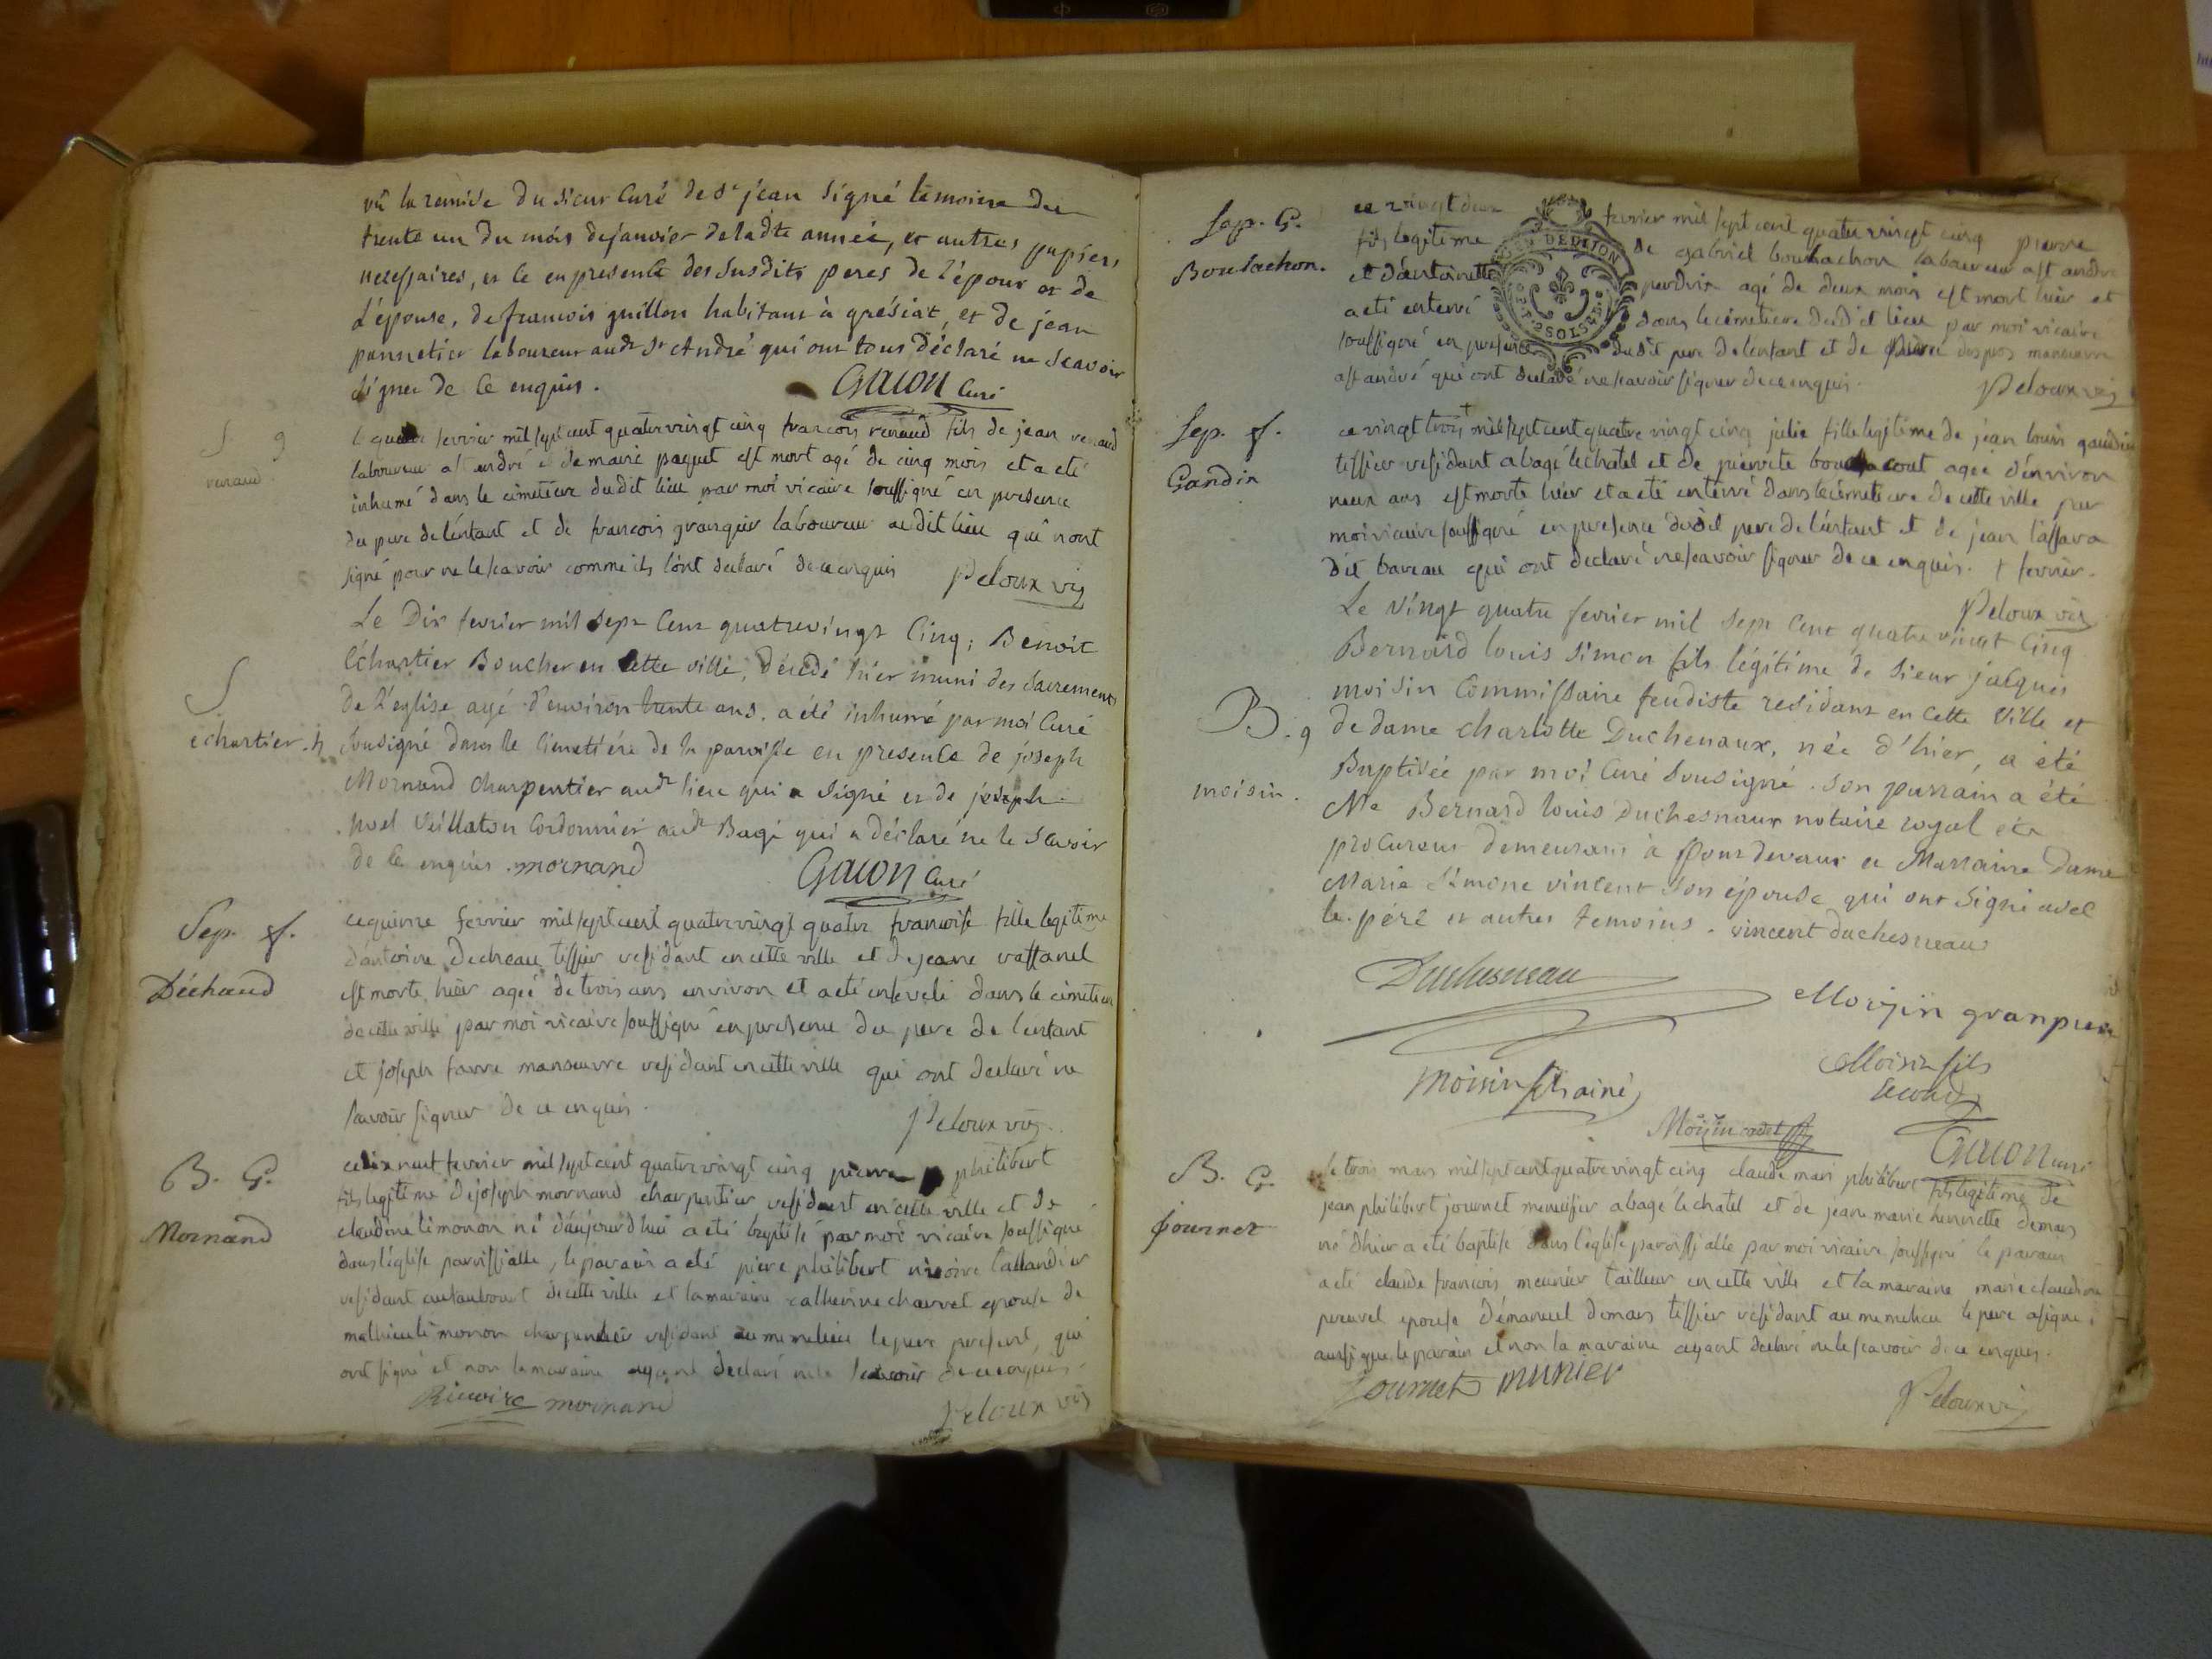 vû la remise du sieur Curé de St jean signé lemoine du
trente un du mois de janvier de ladte année, et autres papiers
necessaires, et ce en presence des susdits peres de l'époux et de
l'épouse, de francois guillon habitant à grésiat, et de jean
pannetier laboureur audt St André qui ont tous déclaré ne scavoir
signer de ce enquis.
Gacon Curé
S. g
renaud.
fevrier mil sept cent quatre vingt cinq francois renaud fils de jean renaud
laboureur a st andré et de marie paquet est mort agé de cinq mois et a eté
inhumé dans le cimetiere dudit lieu par moi vicaire soussigné en presence
du pere de l'enfant et de francois grangier laboureur audit lieu qui n'ont
signé pour ne le scavoir comme ils l'ont declaré de ce enquis
Peloux vic
Le Dix fevrier mil sept cent quatrevingt cinq, Benoit
Echartier Boucher en cette ville, décedé hier muni des sacrements
de l'église agé d'environ trente ans. a été inhumé par moi Curé
sousigné dans le cimetiére de la paroisse en presence de joseph
Mornand charpentier audt lieu qui a signé et de joseph
noel Veillaton Cordonnier audt Bagé qui a déclaré ne le scavoir
de ce enquis. mornand
Gacon Curé
S
echartier. h
Sep. f.
Déchaud
ce quinze fevrier mil sept cent quatre vingt quatre francoise fille legitime
d'antoine Decheau tissier residant en cette ville et de jeane vassanel
est morte hier agée de trois ans environ et a eté enseveli dans le cimetiere
de cette ville par moi vicaire soussigné en presence du pere de l'enfant
et joseph favre manœuvre residant en cette ville qui ont declaré ne
savoir signer de ce enquis.
Peloux vic.
B. G.
Mornand
ce dix neuf fevrier mil sept cent quatre vingt cinq pierre philibert
fils legitime de joseph mornand charpentier residant en cette ville et de
claudine limonon né d'aujourd'hui a eté baptisé par moi vicaire soussigné
dans l'église parroissialle, le parain a eté piere philibert rivoire taillandier
residant au faubourt de cette ville et la maraine catherine charvet epouse de
mathieu limonon charpentier residant au meme lieu le pere present, qui
ont signé et non la maraine ayant declaré ne le scavoir de ce enquis.
Rivoire mornand
Peloux vic
Sep. G.
Boulachon.
ce vingt deux fevrier mil sept cent quatre vingt cinq pierre
fils legitime de gabriel boulachon laboureur a st andré
et d'antoinette perdrix agé de deux mois est mort hier et
a eté enterré dans le cimetiere dudit lieu par moi vicaire
soussigné en presence dudit pere de l'enfant et de pierre despres manœuvre
a st andré qui ont declaré ne scavoir signer de ce enquis.
Peloux vic
DE DIJON
SOLS
Sep. f.
Gandin
ce vingt trois + mil sept cent quatre vingt cinq julie fille legitime de jean louis gaudin
tissier residant a bagé le chatel et de pierrete agée d'environ
neux ans est morte hier et a eté enterré dans le cimetiere de cette ville par
moi vicaire soussigné en presence dudit pere de l'enfant et de jean tassara
dit bareau qui ont declaré ne scavoir signer de ce enquis. + fevrier.
Peloux vic
Le vingt quatre fevrier mil sept cent quatre vingt cinq
Bernard louis simon fils légitime de sieur jacques
moisin Commissaire feudiste residant en cette ville et
de dame charlotte Duchenaux, née d'hier, a été
Baptisée par moi Curé sousigné. son parrain a été
Me Bernard louis duchesnaux notaire royal et
procureur demeurant à Pont devaux et Marraine Dame
Marie simone vincent son épouse qui ont signé avec
le pére et autres temoins. vincent duchesneau
B. g
moisin.
Duchesneau
Moisin granpere
Moisin fils ainé
Moisin fils
second
Moisin cadet
Gacon curé
B. G.
journet
le trois mars mil sept cent quatre vingt cinq claude mari philibert fils legitime de
jean philibert journet menuisier a bagé le chatel et de jeane marie henriette demars
né d'hier a eté baptisé dans l'eglise paroissialle par moi vicaire soussigné le parain
a eté claude francois meunier tailleur en cette ville et la maraine marie claudine
pruvel epouse d'émanuel demars tissier residant au meme lieu le pere a signé
aussi que le parain et non la maraine ayant declaré ne le scavoir de ce enquis.
Journet munier
Peloux vic